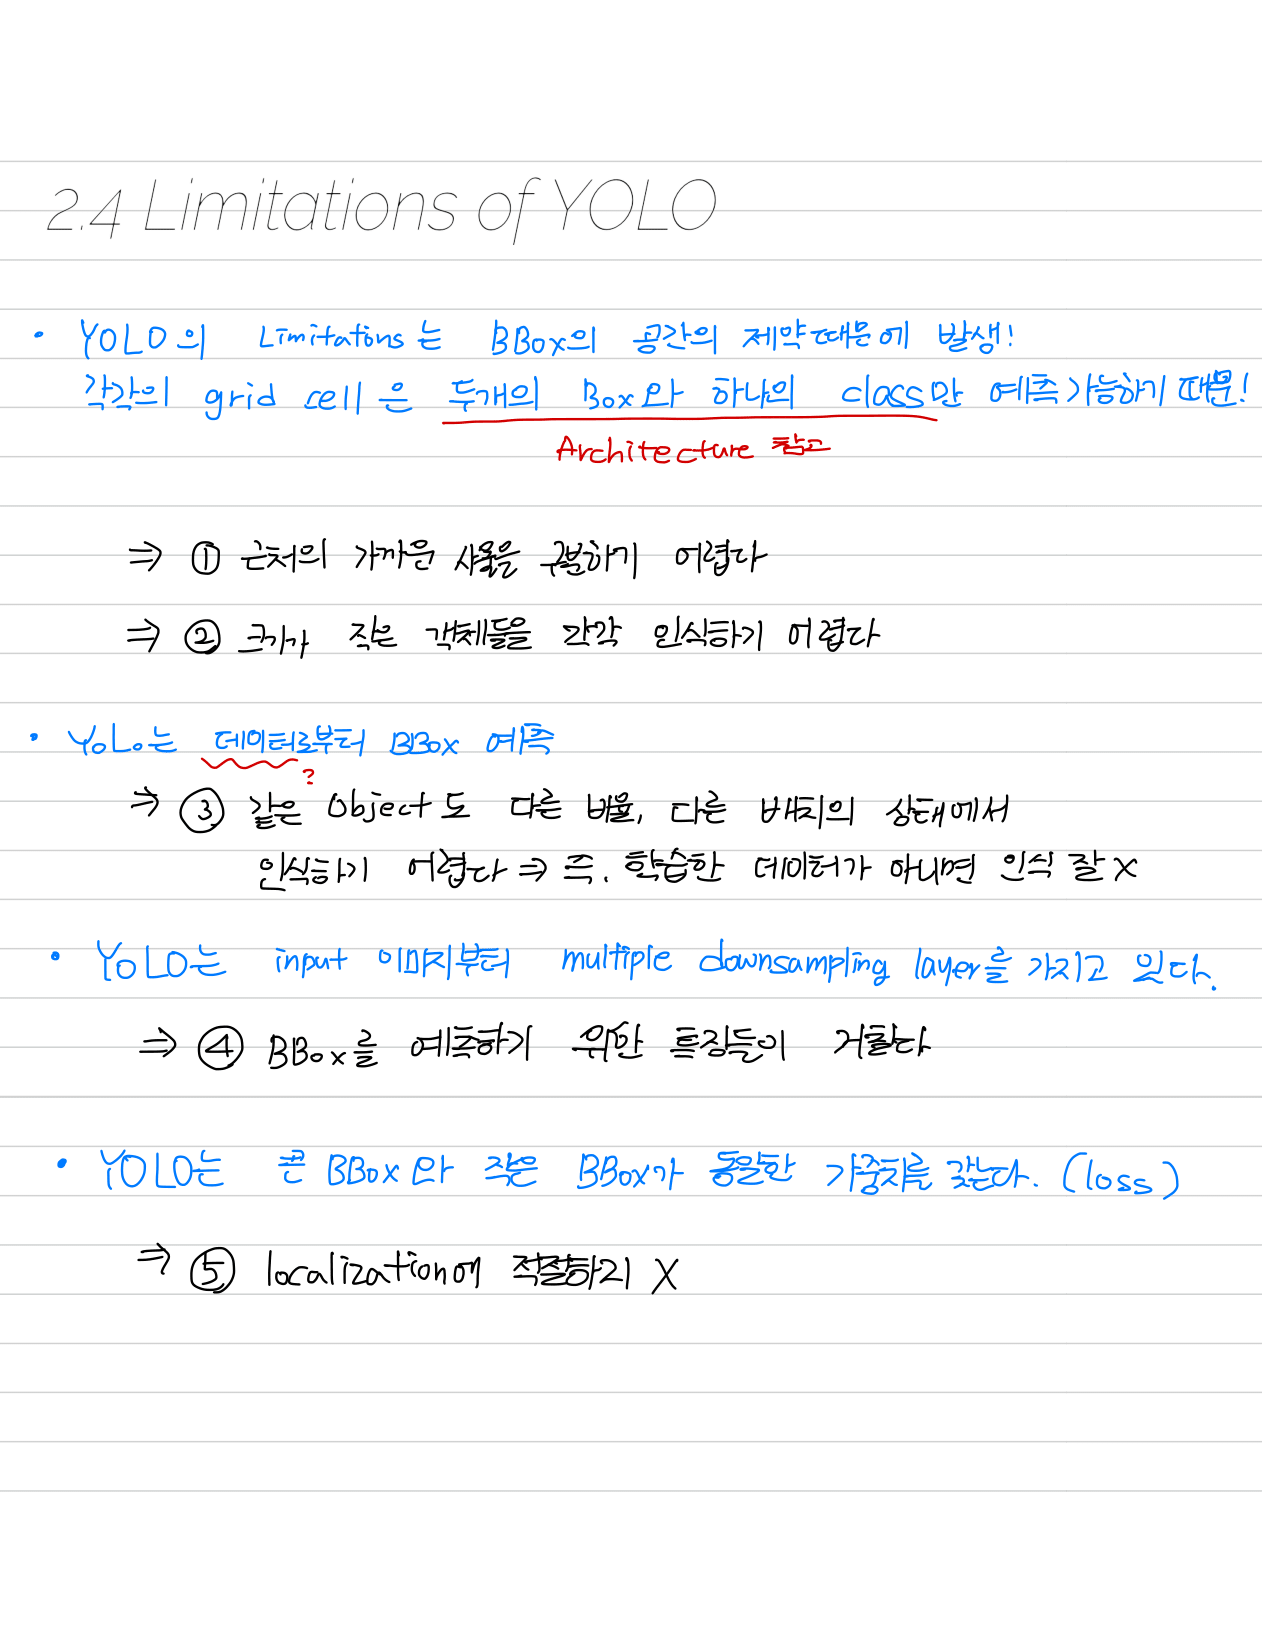 2.4 Limitations of YOLO
• YOLO의 Limitations는 BBox의 공간의 제약때문에 발생!
각각의 grid cell은 두개의 Box와 하나의 class만 예측가능하기 때문!
Architecture 참고
⇒ ① 근처의 가까운 사물을 구분하기 어렵다
⇒ ② 크기가 작은 객체들을 각각 인식하기 어렵다
• YOLO는 데이터로부터 BBox 예측
?
⇒ ③ 같은 Object도 다른 비율, 다른 배치의 상태에서
인식하기 어렵다 ⇒ 즉, 학습한 데이터가 아니면 인식 잘 X
• YOLO는 input 이미지부터 multiple downsampling layer를 가지고 있다.
⇒ ④ BBox를 예측하기 위한 특징들이 거칠다
• YOLO는 큰 BBox와 작은 BBox가 동일한 가중치를 갖는다. (loss)
⇒ ⑤ localization에 적절하지 X